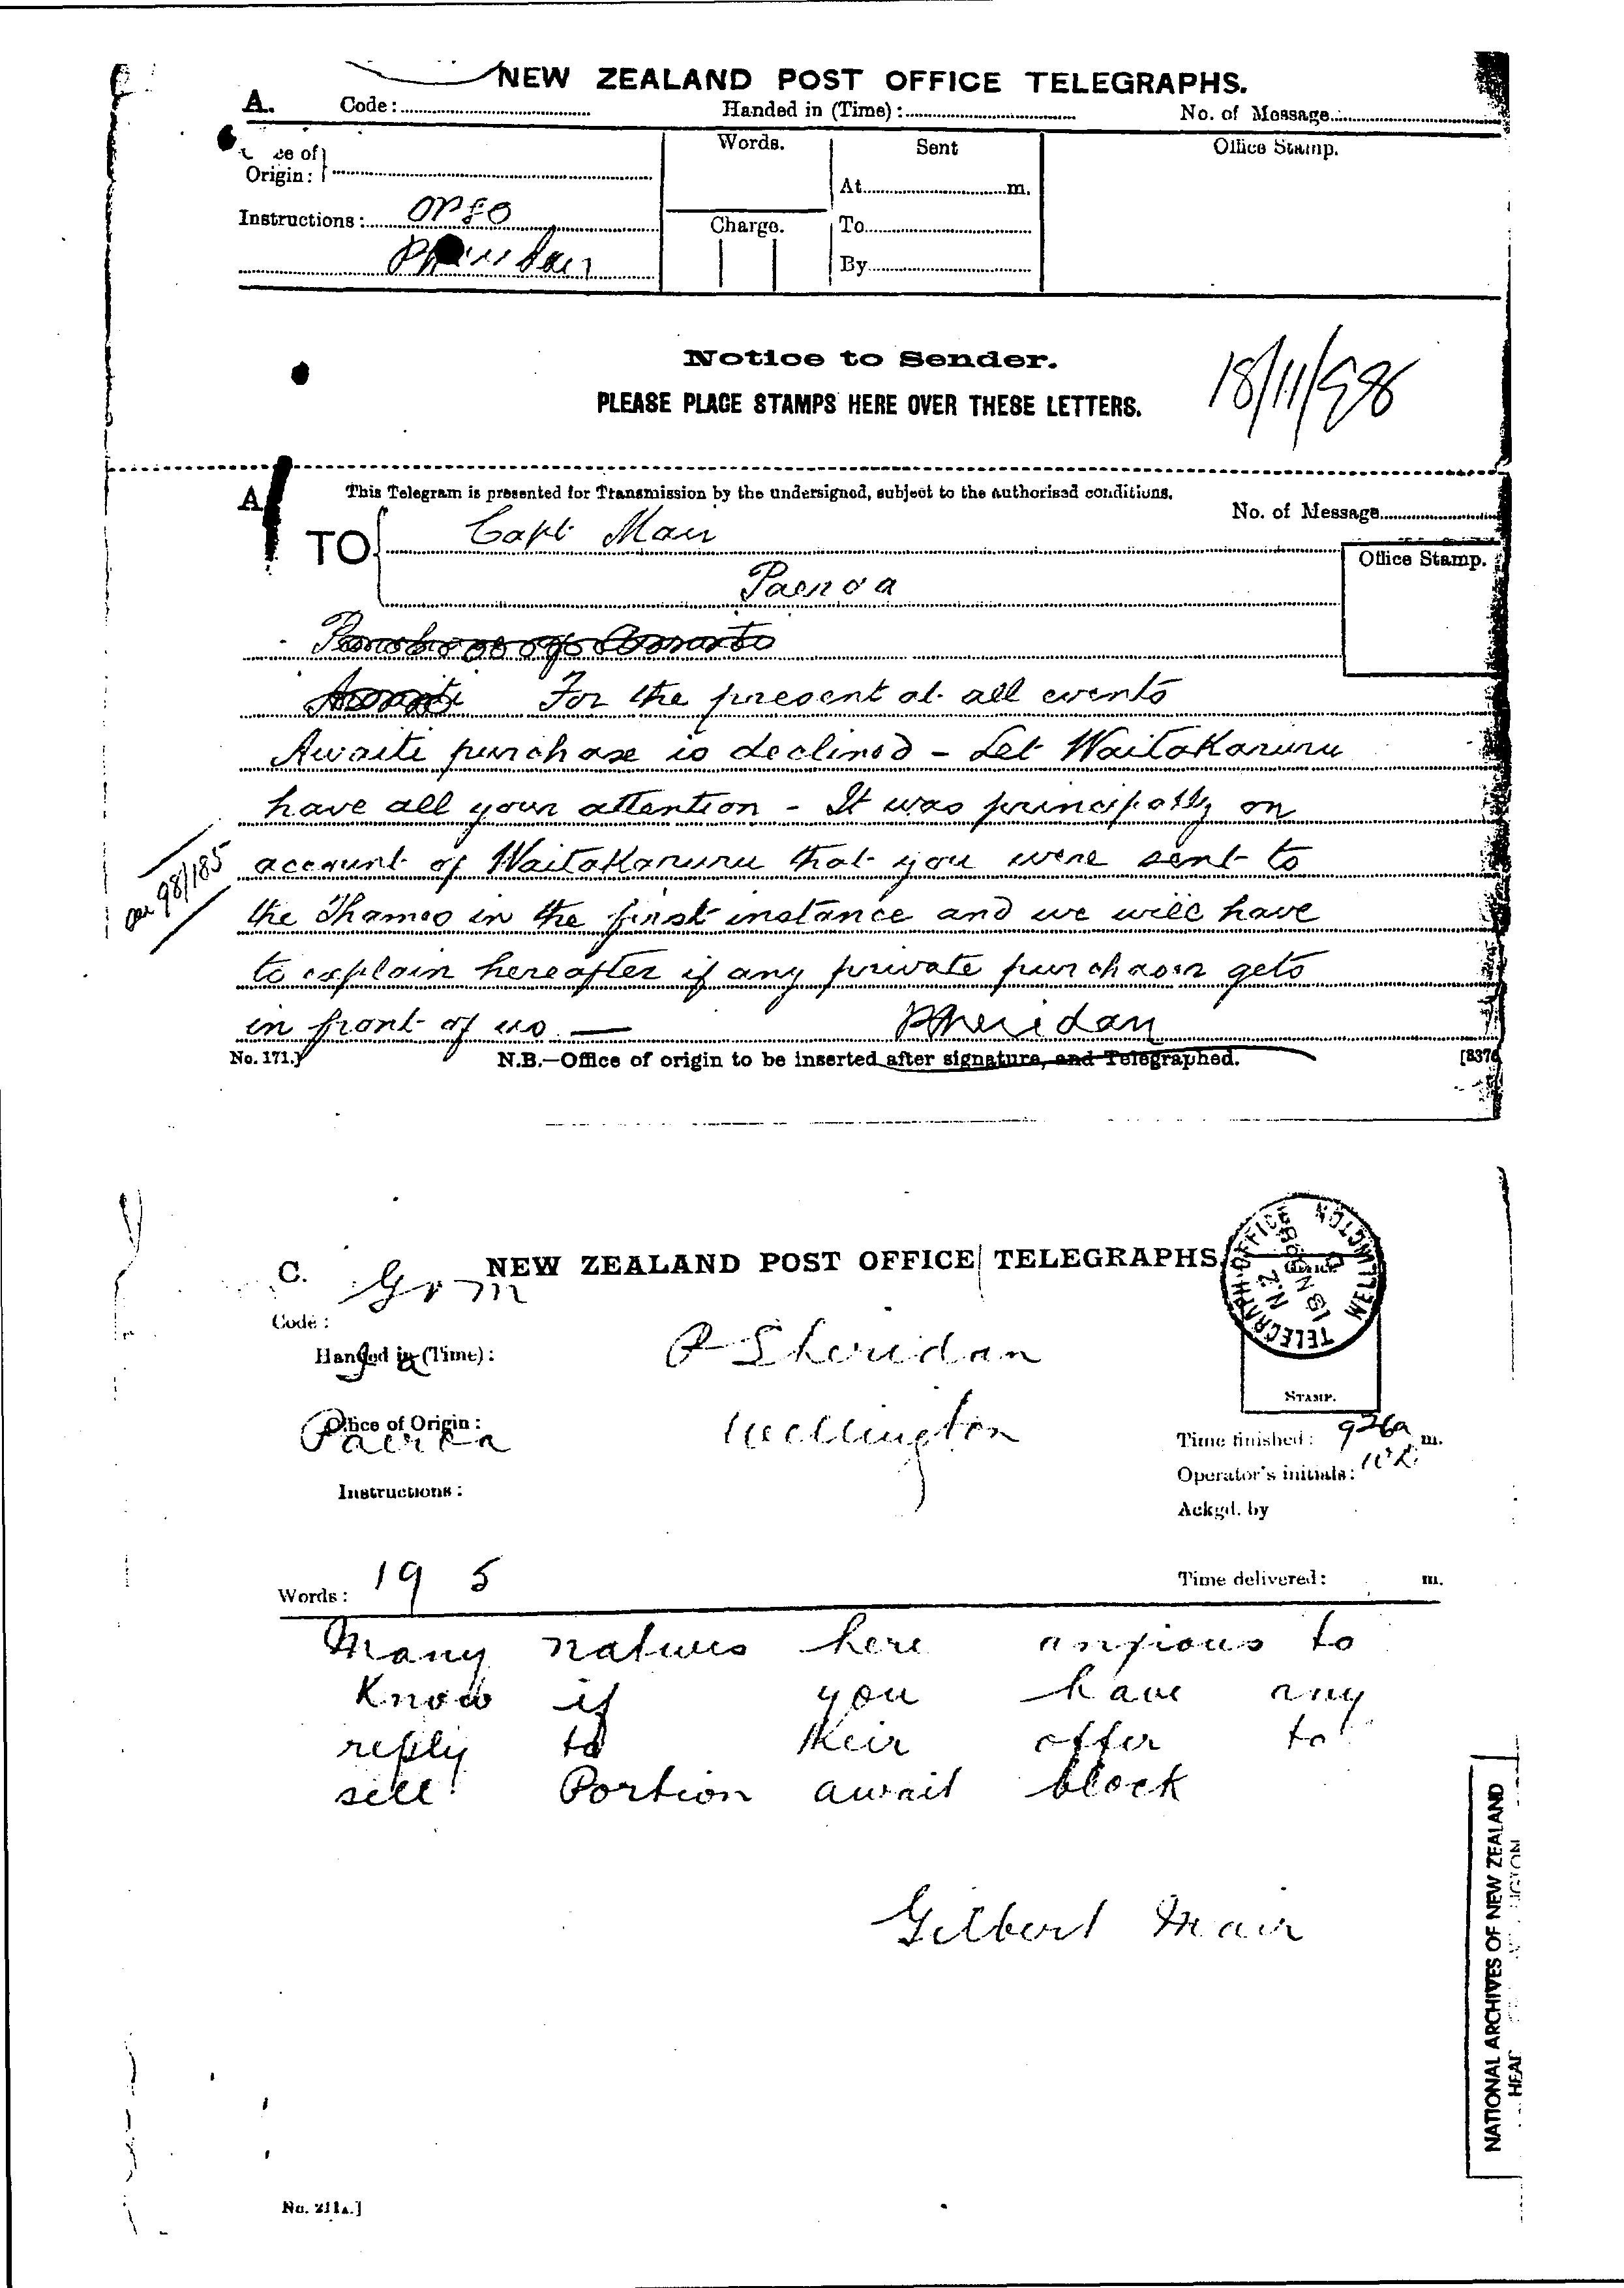 NEW ZEALAND POST OFFICE TELEGRAPHS.
A. Code: Handed in (Time): No. of Message
ce of Origin:
Words. Sent Office Stamp.
At m.
Instructions: Charge. To
By
Notice to Sender.
18/11/98
PLEASE PLACE STAMPS HERE OVER THESE LETTERS.
A This Telegram is presented for Transmission by the undersigned, subject to the authorised conditions.
No. of Message
TO Capt Mair
Office Stamp.
Paeroa
For the present at all events
Awaiti purchase is declined - Let Waitakaruru
have all your attention - It was principally on
98/185
account of Waitakaruru that you were sent to
the Thames in the first instance and we will have
to explain hereafter if any private purchaser gets
in front of us — PSheridan
No. 171.] N.B.—Office of origin to be inserted after signature, and Telegraphed. [837
C. NEW ZEALAND POST OFFICE TELEGRAPHS
TELEGRAPH OFFICE WELLINGTON N.Z. 18 NO 98
Code:
Handed in (Time): P Sheridan
STAMP.
Office of Origin: Wellington
Paeroa
Time finished: 926a m.
Operator's initials:
Instructions:
Ackgd. by
Words: 19 5 Time delivered: m.
Many natives here anxious to
Know if you have any
reply to their offer to
sell Portion await block
Gilbert Mair
NATIONAL ARCHIVES OF NEW ZEALAND
No. 211A.]